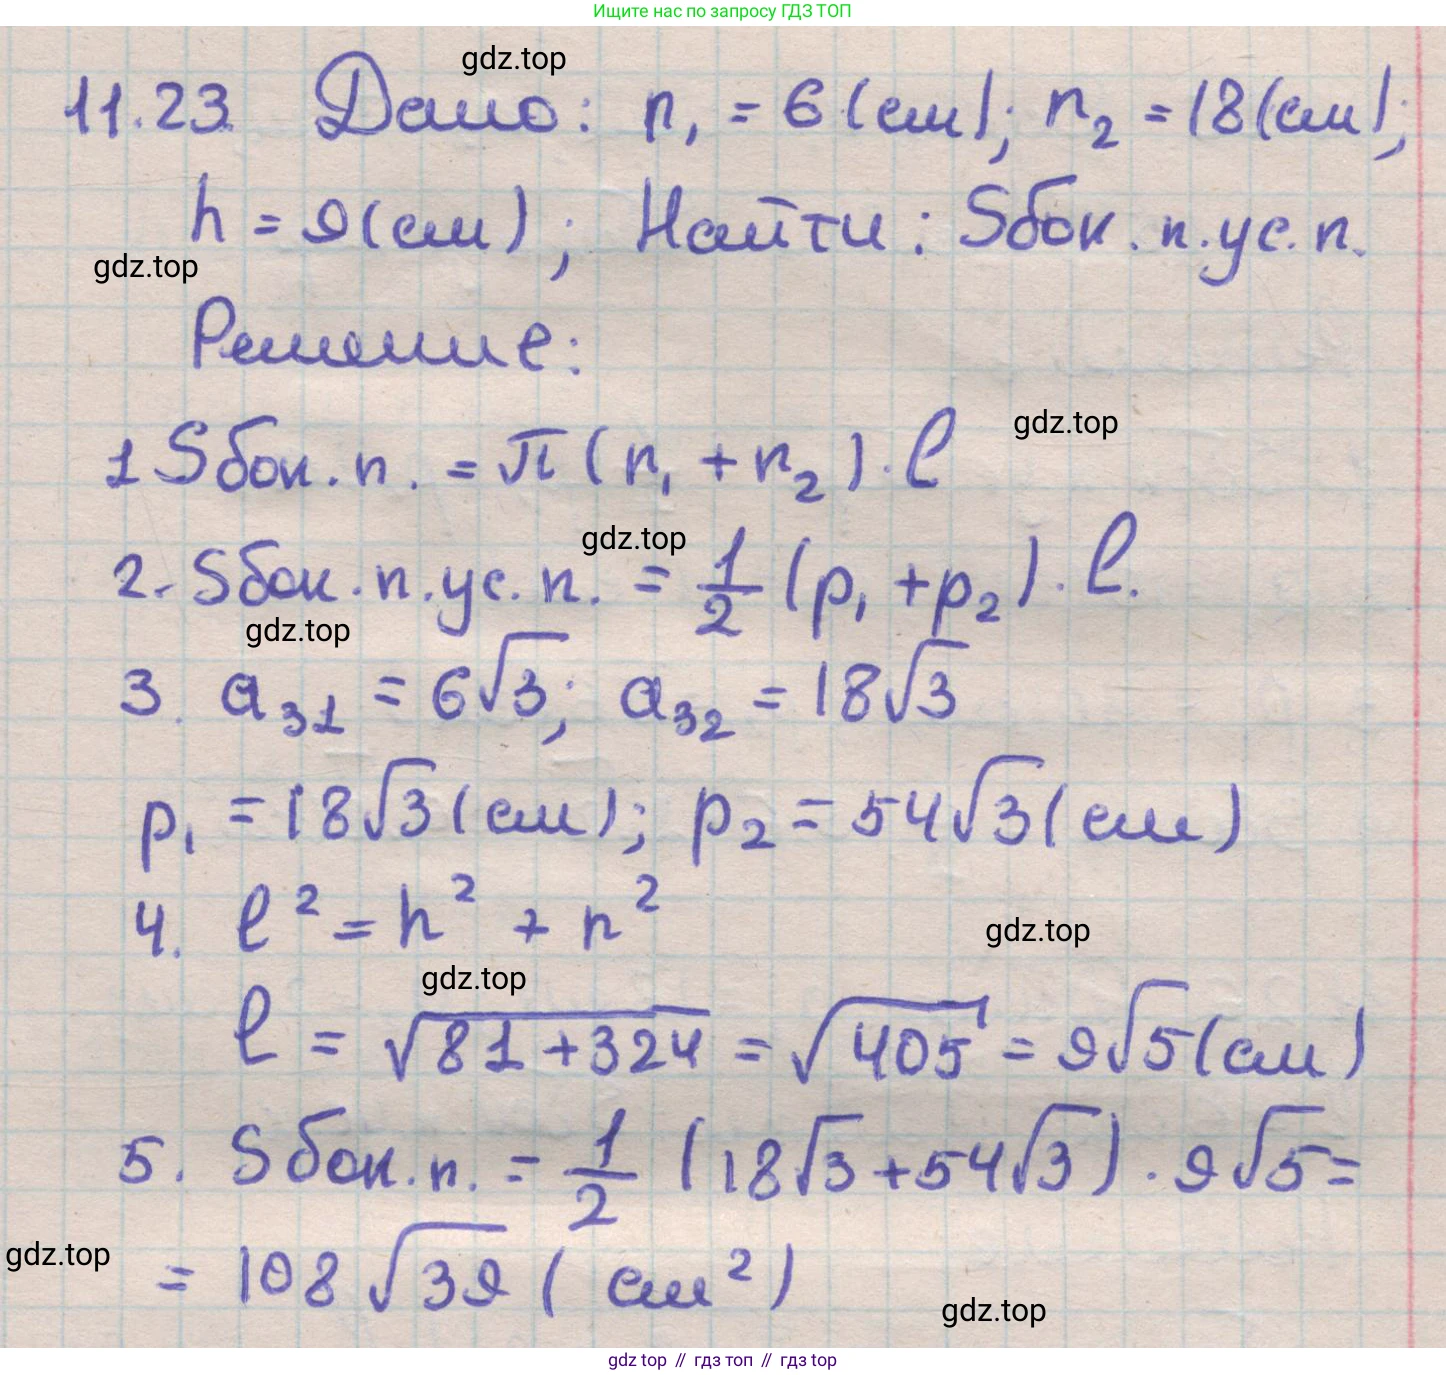 Ищите нас по запросу ГДЗ ТОП
gdz.top
11.23 Дано: r₁ = 6 (см); r₂ = 18 (см);
h = 9 (см); Найти: Sбок.п.ус.п.
gdz.top
Решение:
gdz.top
1 Sбок.п. = π (r₁ + r₂) · l
gdz.top
2. Sбок.п.ус.п. = 1/2 (p₁ + p₂) · l.
gdz.top
3. a₃₁ = 6√3; a₃₂ = 18√3
p₁ = 18√3 (см); p₂ = 54√3 (см)
4. l² = h² + r²
gdz.top
gdz.top
l = √81+324 = √405 = 9√5 (см)
5. Sбок.п. = 1/2 (18√3 + 54√3) · 9√5 =
gdz.top
= 108 √39 (см²)
gdz.top
gdz top // гдз топ // гдз top